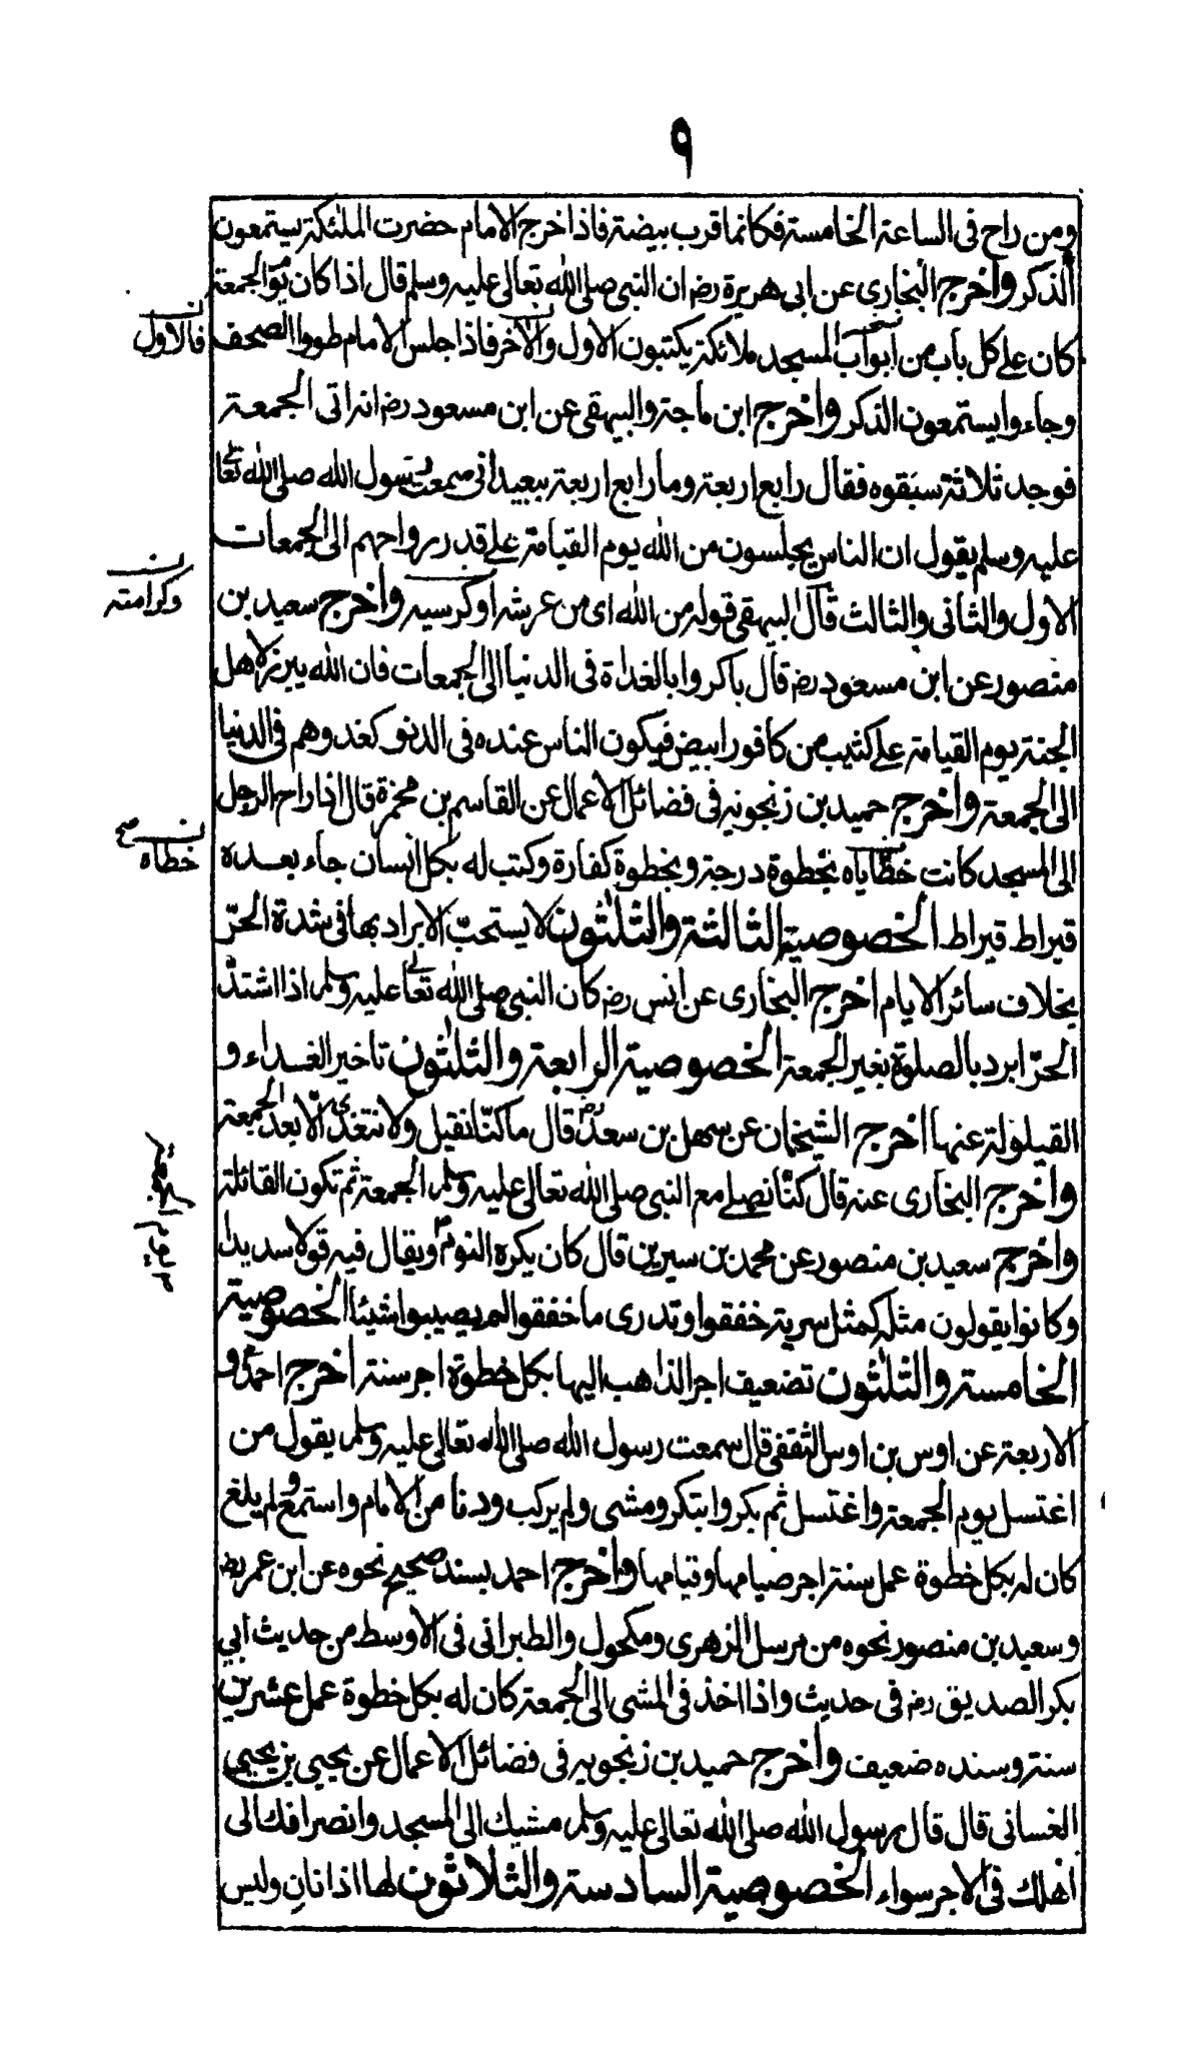 ٩
ومن راح فى الساعة الخامسة فكانما قرب بيضة فاذا خرج الامام حضرت الملئكة يستمعون
الذكر واخرج البخارى عن ابى هريرة رض ان النبى صلى الله تعالى عليه وسلم قال اذا كان يوم الجمعة
كان على كل باب من ابواب المسجد ملائكة يكتبون الاول والآخر فاذا جلس الامام طووا الصحف
فالاول
وجاءوا يستمعون الذكر واخرج ابن ماجة والبيهقى عن ابن مسعود رض انه اتى الجمعة
فوجد ثلاثة سبقوه فقال رابع اربعة وما رابع اربعة ببعيد انى سمعت رسول الله صلى الله تعا
عليه وسلم يقول ان الناس يجلسون من الله يوم القيامة على قدر رواحهم الى الجمعات
الاول والثانى والثالث قال البيهقى قوله من الله اى من عرشه اوكرسيه واخرج سعيد بن
وكرامته
منصور عن ابن مسعود رض قال باكروا بالغداة فى الدنيا الى الجمعات فان الله يبرز لاهل
الجنة يوم القيامة على كثيب من كافور ابيض فيكون الناس عنده فى الدنو كغدوهم فى الدنيا
الى الجمعة واخرج حميد بن زنجويه فى فضائل الاعمال عن القاسم بن مخمرة قال اذا راح الرجل
الى المسجد كانت خطاياه بخطوة درجة وبخطوة كفارة وكتب له بكل انسان جاء بعده
خطاه صح
قيراط قيراط الخصوصية الثالثة والثلثون لا يستحبّ الابراد بها فى شدة الحرّ
بخلاف سائر الايام اخرج البخارى عن انس رض كان النبى صلى الله تعا عليه وسلم اذا اشتدّ
الحرّ ابرد بالصلوة بغير الجمعة الخصوصية الرابعة والثلثون تاخير الغداء و
القيلولة عنها اخرج الشيخان عن سهل بن سعد رض قال ما كنّا نقيل ولا نتغدى الّا بعد الجمعة
واخرج البخارى عنه قال كنّا نصلى مع النبى صلى الله تعالى عليه وسلم الجمعة ثم تكون القائلة
واخرج سعيد بن منصور عن محمد بن سيرين قال كان يكره النوم ويقال فيه قولا سديدا
وكانوا يقولون مثله كمثل سرية خفقوا وتدرى ما خفقوا لم يصيبوا شيئا الخصوصية
الخامسة والثلثون تضعيف اجر الذاهب اليها بكل خطوة اجر سنة اخرج احمد و
الاربعة عن اوس بن اوس الثقفى قال سمعت رسول الله صلى الله تعالى عليه وسلم يقول من
اغتسل يوم الجمعة واغتسل ثم بكر وابتكر ومشى ولم يركب ودنا من الامام واستمع ولم يلغ
كان له بكل خطوة عمل سنة اجر صيامها وقيامها واخرج احمد بسند صحيح نحوه عن ابن عمر رض
وسعيد بن منصور نحوه من مرسل الزهرى ومكحول والطبرانى فى الاوسط من حديث ابى
بكر الصديق رض فى حديث واذا اخذ فى المشى الى الجمعة كان له بكل خطوة عمل عشرين
سنة وسنده ضعيف واخرج حميد بن زنجويه فى فضائل الاعمال عن يحيى بن يحيى
الغسانى قال قال رسول الله صلى الله تعالى عليه وسلم مشيك الى المسجد وانصرافك الى
اهلك فى الاجر سواء الخصوصية السادسة والثلاثون لها اذانانِ وليس